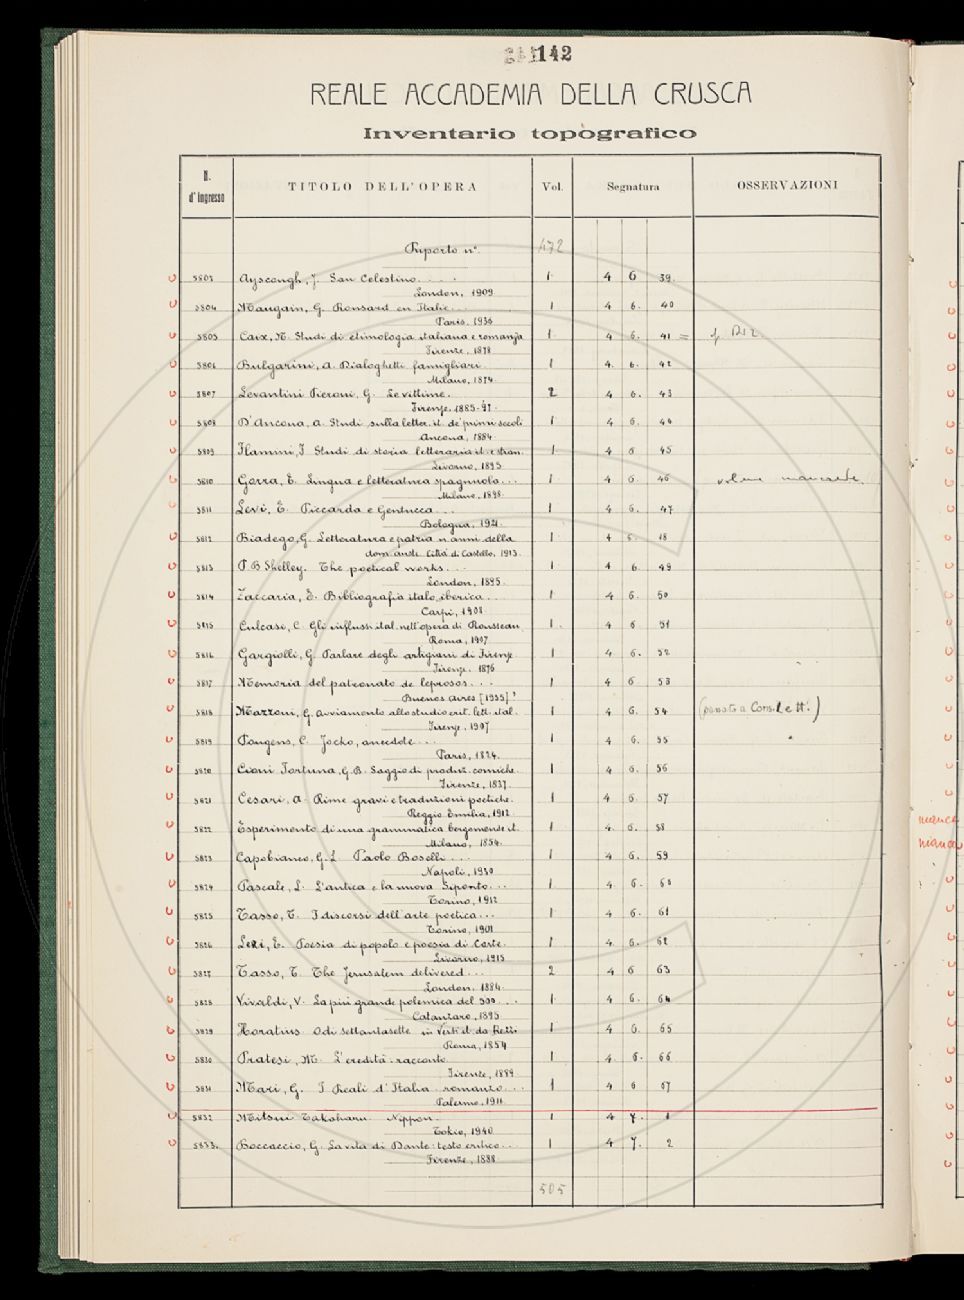 142
REALE ACCADEMIA DELLA CRUSCA
Inventario topografico
N. d'ingresso TITOLO DELL'OPERA Vol. Segnatura OSSERVAZIONI
Riporto n° 472
5803 Ayscough, J. San Celestino.... 1 4 6 39.
London, 1909
5804 Maugain, G. Ronsard en Italie... 1 4 6. 40
Paris, 1936
5805 Caix, N. Studi di etimologia italiana e romanza 1 4 6. 41 =
Firenze, 1878
5806 Bulgarini, A. Dialoghetti famigliari. 1 4. 6. 42
Milano, 1874
5807 Levantini Pieroni, G. Le vittime. 2 4 6. 43
Firenze, 1885-87.
5808 D'Ancona, A. Studi sulla letter. it. de' primi secoli 1 4 6. 44
Ancona, 1884
5809 Flamini, F. Studi di storia letteraria it. e stran. 1 4 6 45
Livorno, 1895
5810 Gorra, E. Lingua e letteratura spagnuola... 1 4 6. 46 volume mancante.
Milano, 1898.
5811 Levi, E. Piccarda e Gentucca... 1 4 6. 47
Bologna, 1921.
5812 Biadego, G. Letteratura e patria n. anni della 1 4 6. 48
dom. austr. Città di Castello, 1913.
5813 P B Shelley. The poetical works... 1 4 6. 49
London, 1895.
5814 Zaccaria, E. Bibliografia italo-iberica.. 1 4 6. 50
Carpi, 1908.
5815 Culcasi, C. Gli influssi ital. nell'opera di Rousseau. 1. 4 6 51
Roma, 1907
5816 Gargiolli, G. Parlare degli artigiani di Firenze. 1 4 6. 52
Firenze. 1876
5817 Memoria del patronato de leprosos... 1 4 6 53
Buenos Aires [1935]
5818 Mazzoni, G. Avviamento allo studio crit. lett. ital. 1 4 6. 54 (passato a Cons. Lett.)
Firenze, 1907
5819 Pougens, C. Jocko, anecdote... 1 4 6. 55
Paris, 1824.
5820 Cioni Fortuna, G.B. Saggio di produz. comiche. 1 4 6. 56
Firenze, 1837.
5821 Cesari, A. Rime gravi e traduzioni poetiche. 1 4 6. 57
Reggio Emilia, 1912
5822 Esperimento di una grammatica bergomense it. 1 4. 6. 58
Milano, 1854.
5823 Capobianco, G. L. Paolo Boselli... 1 4 6. 59
Napoli, 1930
5824 Pascale, L. L'antica e la nuova Siponto... 1 4 6. 60
Torino, 1912
5825 Tasso, T. I discorsi dell'arte poetica... 1 4 6. 61
Torino, 1901
5826 Levi, E. Poesia di popolo e poesia di Corte. 1 4. 6. 62
Livorno, 1915
5827 Tasso, T. The Jerusalem delivered... 2 4 6 63
London. 1884.
5828 Vivaldi, V. La più grande polemica del 500... 1. 4 6. 64
Catanzaro, 1895
5829 Horatius. Odi settantasette in versi it. da 1 4 6. 65
Roma, 1854
5830 Pratesi, M. L'eredità. racconto 1 4. 6. 66
Firenze, 1889.
5831 Mari, G. I Reali d'Italia romanzo... 1 4 6 67
Palermo, 1911.
5832 Mitsui Takaharu. Nippon. 1 4 7. 1
Tokio, 1940.
5833. Boccaccio, G. La vita di Dante: testo critico... 1 4 7. 2
Firenze, 1888
505
manca
manca